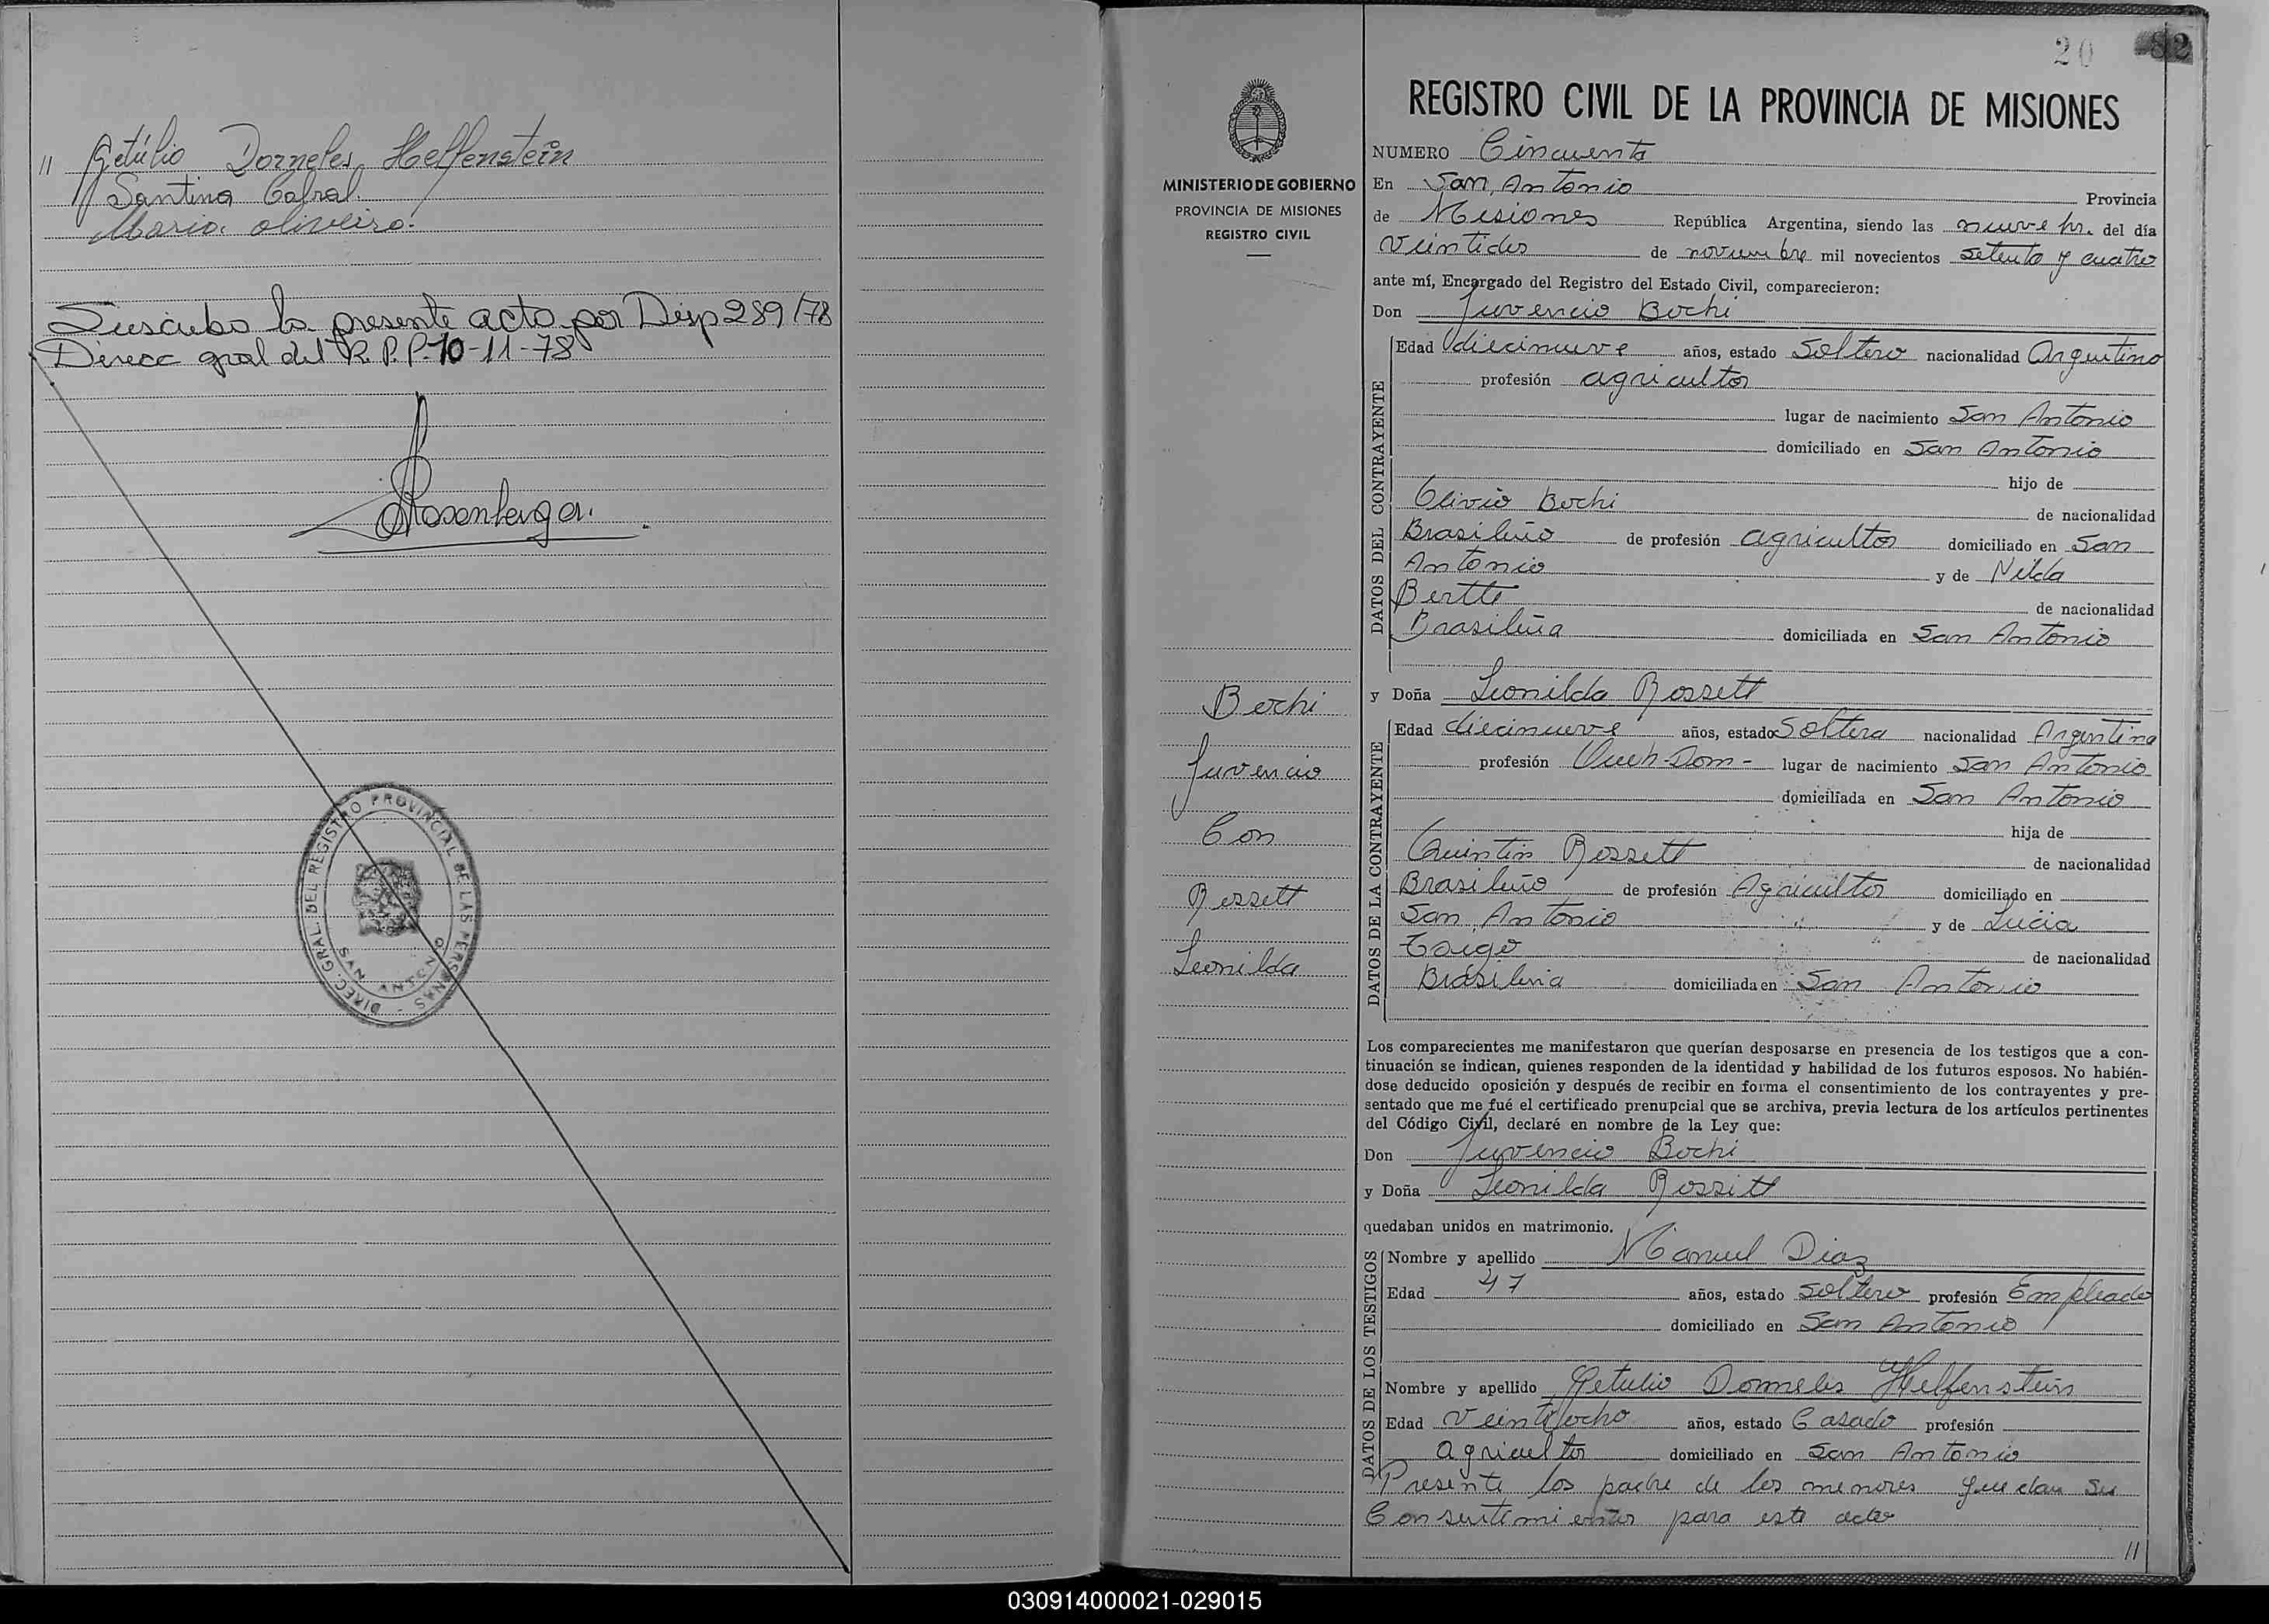 " Getúlio Dorneles Helfenstein
Santina Cabral.
Maria oliveira.
Suscribo la presente acta por Disp 289/78
Direcc gral del R. P. P. 10-11-78
DIREC. GRAL. DEL REGISTRO PROVINCIAL DE LAS PERSONAS -
SAN ANTONIO
20 82
MINISTERIO DE GOBIERNO
PROVINCIA DE MISIONES
REGISTRO CIVIL
Bochi
Juvencio
Con
Rossett
Leonilda
REGISTRO CIVIL DE LA PROVINCIA DE MISIONES
NUMERO Cincuenta
En San Antonio Provincia
de Misiones República Argentina, siendo las nueve hr. del día
veintidos de noviembre mil novecientos setenta y cuatro
ante mí, Encargado del Registro del Estado Civil, comparecieron:
Don Juvencio Bochi
DATOS DEL CONTRAYENTE
Edad diecinueve años, estado Soltero nacionalidad Argentino
profesión agricultor
lugar de nacimiento San Antonio
domiciliado en San Antonio
hijo de
Olivio Bochi de nacionalidad
Brasileño de profesión agricultor domiciliado en San
Antonio y de Nilda
Bertte de nacionalidad
Brasileña domiciliada en San Antonio
y Doña Leonilda Rossett
DATOS DE LA CONTRAYENTE
Edad diecinueve años, estado Soltera nacionalidad Argentina
profesión Queh-Dom- lugar de nacimiento San Antonio
domiciliada en San Antonio
hija de
Quintin Rossett de nacionalidad
Brasileño de profesión Agricultor domiciliado en
San Antonio y de Lucia
de nacionalidad
Brasileña domiciliada en San Antonio
Los comparecientes me manifestaron que querían desposarse en presencia de los testigos que a con-
tinuación se indican, quienes responden de la identidad y habilidad de los futuros esposos. No habién-
dose deducido oposición y después de recibir en forma el consentimiento de los contrayentes y pre-
sentado que me fué el certificado prenupcial que se archiva, previa lectura de los artículos pertinentes
del Código Civil, declaré en nombre de la Ley que:
Don Juvencio Bochi
y Doña Leonilda Rossett
quedaban unidos en matrimonio.
DATOS DE LOS TESTIGOS
Nombre y apellido Manuel Diaz
Edad 47 años, estado soltero profesión Empleado
domiciliado en San Antonio
Nombre y apellido Getulio Dorneles Helfenstein
Edad veintiocho años, estado Casado profesión
agricultor domiciliado en San Antonio
Presente los padre de los menores que dan su
Consentimiento para este acto
"
030914000021-029015